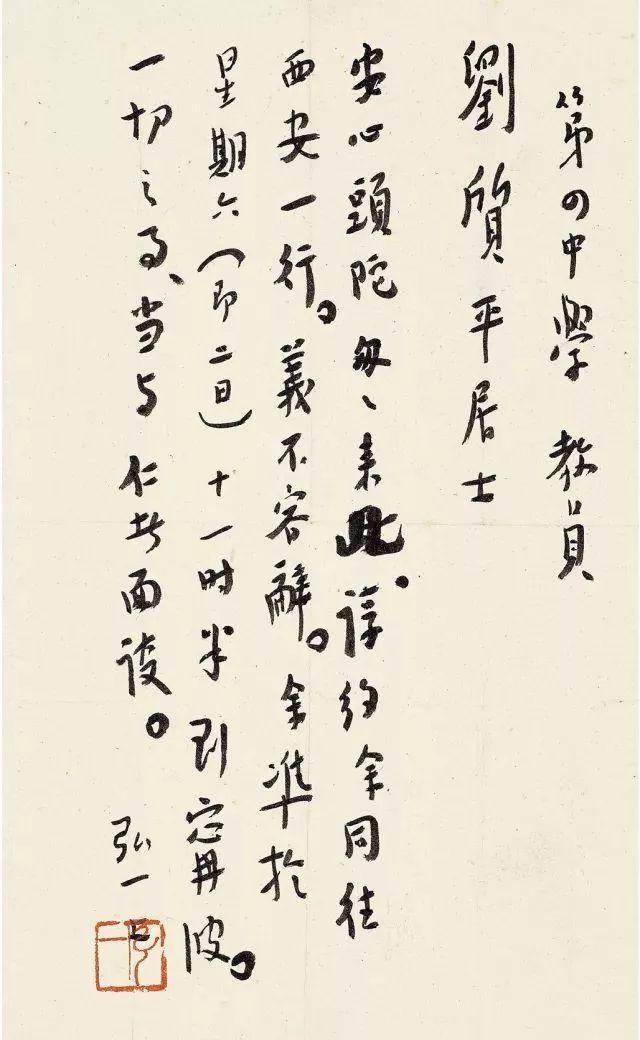 第四中學 教員
劉質平居士
安心頭陀匆〻来此。諄約余同往
西安一行。義不容辭。余準於
星期六(即二日)十一时半到寗波。
一切之事、当与仁者面談。
弘一上